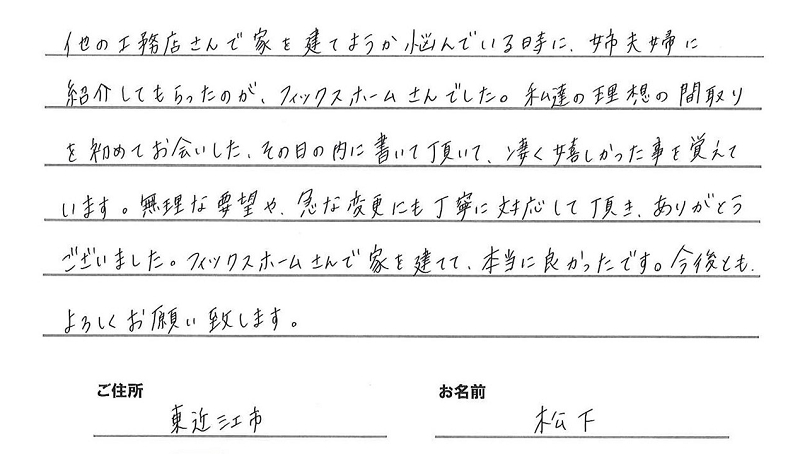 他の工務店さんで家を建てようか悩んでいる時に、姉夫婦に
紹介してもらったのが、フィックスホームさんでした。私達の理想の間取り
を初めてお会いした、その日の内に書いて頂いて、凄く嬉しかった事を覚えて
います。無理な要望や、急な変更にも丁寧に対応して頂き、ありがとう
ございました。フィックスホームさんで家を建てて、本当に良かったです。今後とも、
よろしくお願い致します。
ご住所 お名前
東近江市 松下